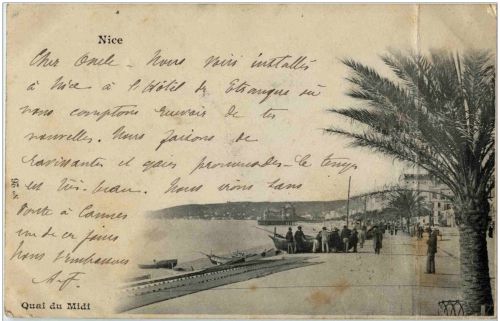 Nice
Cher Oncle - Nous voici installés
à Nice à l'Hôtel des Etrangers où
nous comptons recevoir de tes
nouvelles. Nous faisons de
ravissantes et gaies promenades - le temps
est très-beau. Nous irons sans
doute à Cannes
un de ces jours
Nous t'embrassons
A.F.
N° 26
Quai du Midi